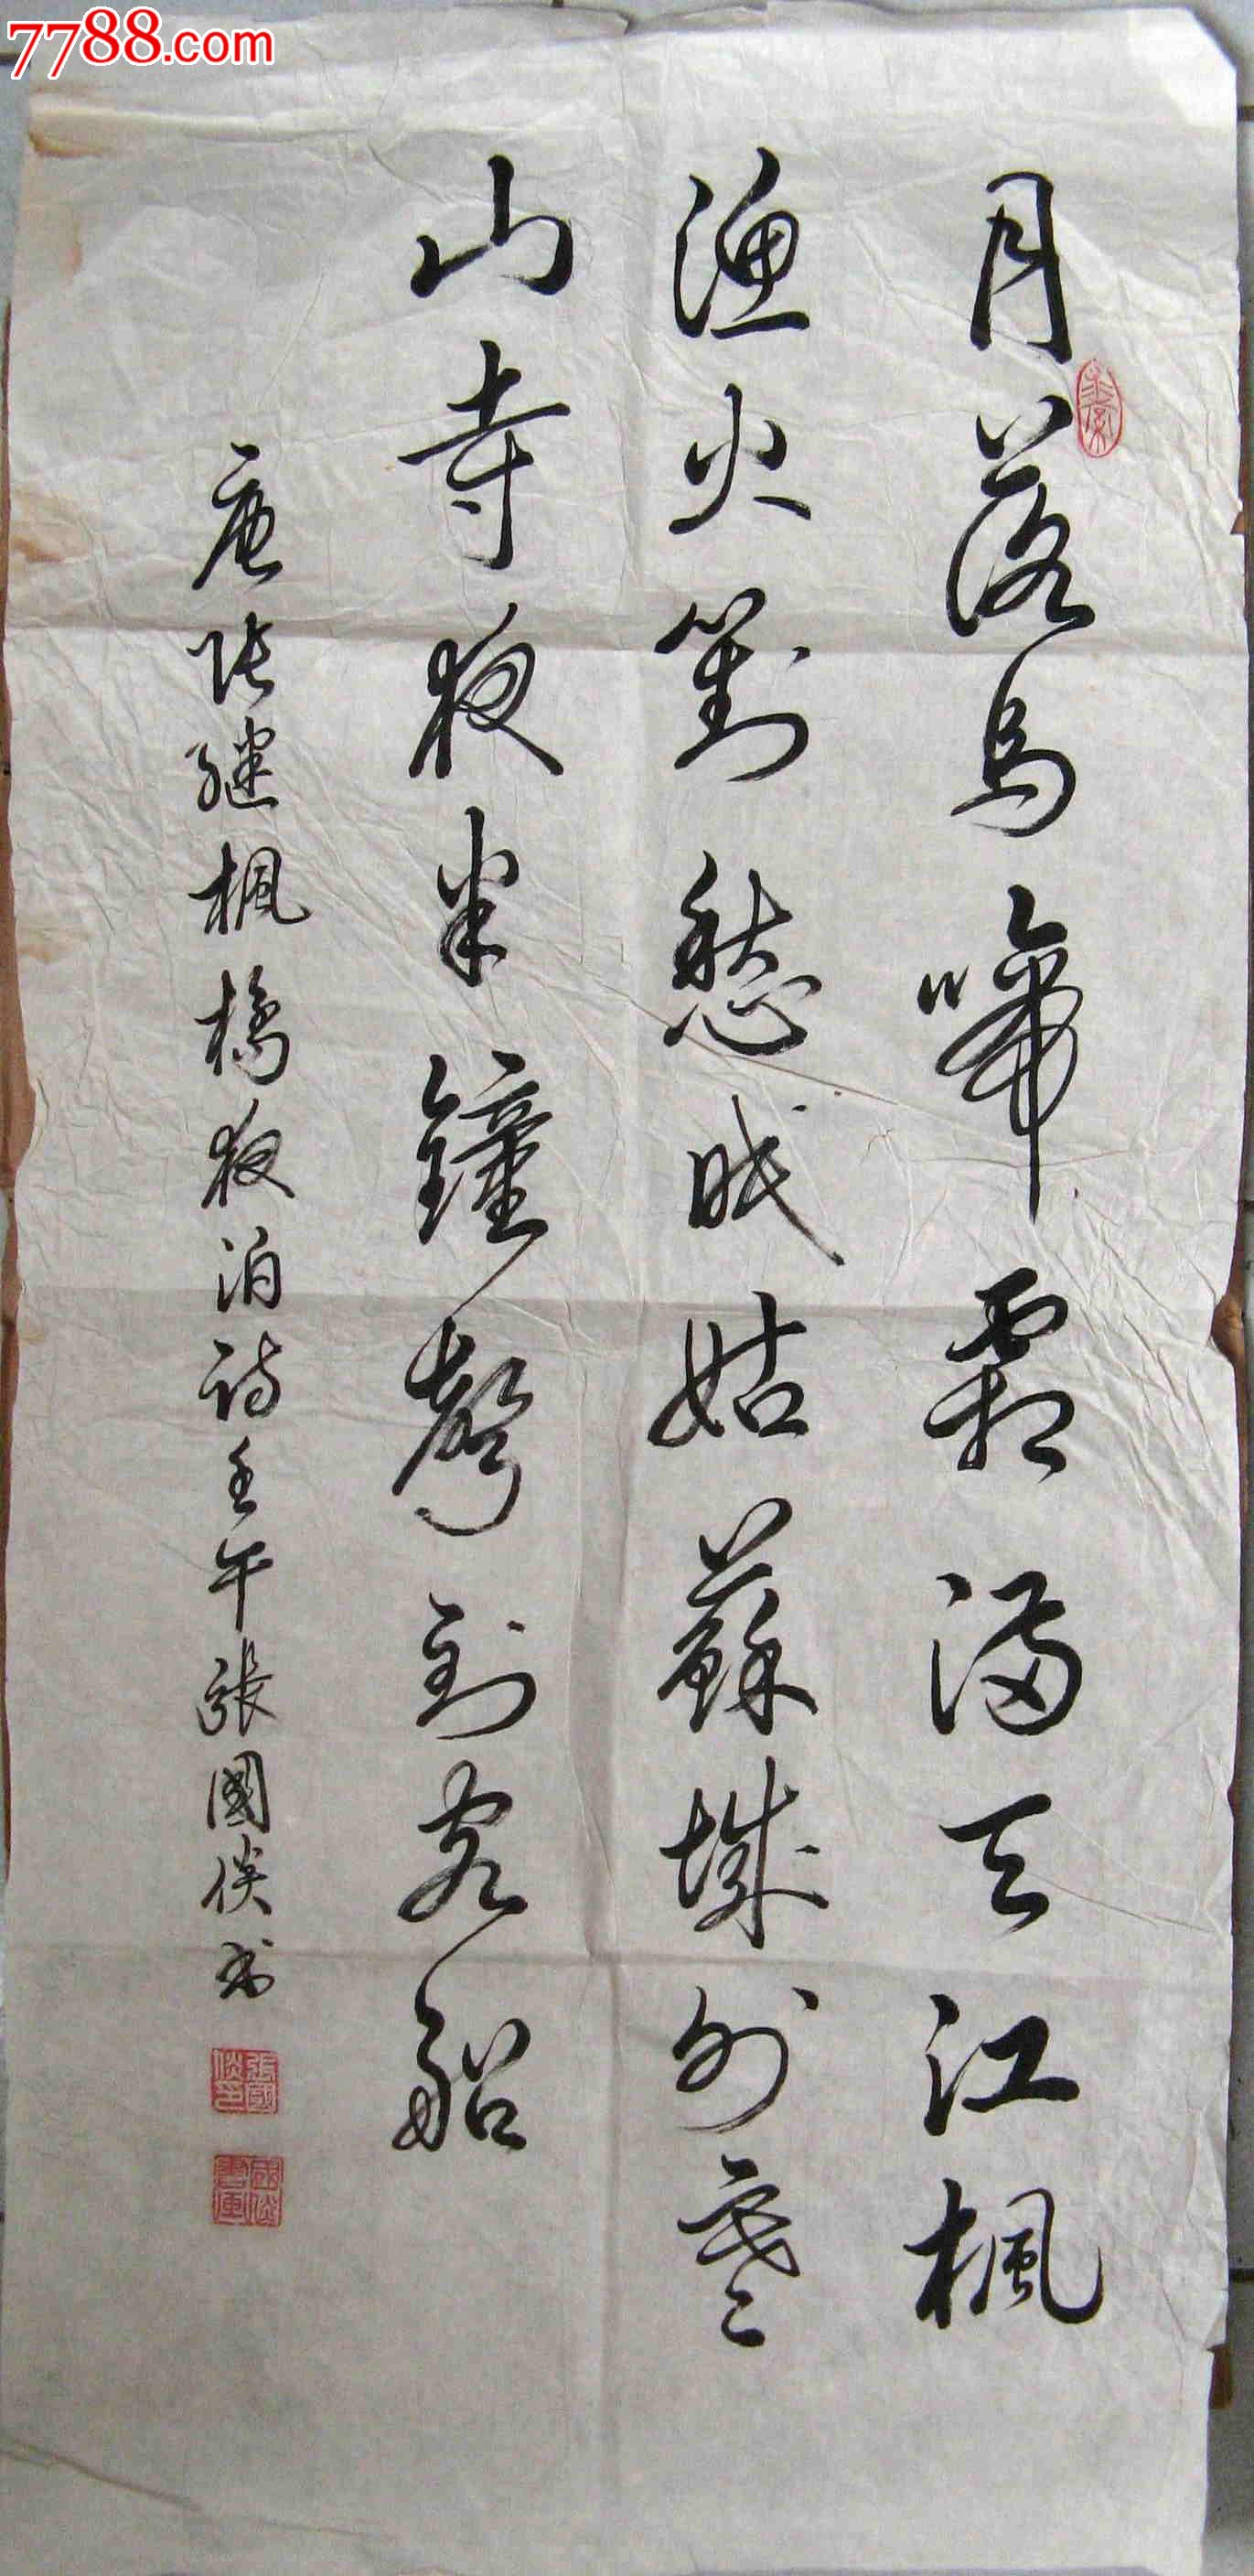 7788.com
月落烏啼霜滿天江楓
漁火對愁眠姑蘇城外寒
山寺夜半鐘聲到客船
唐張繼楓橋夜泊詩壬午張國俊书
張國俊印